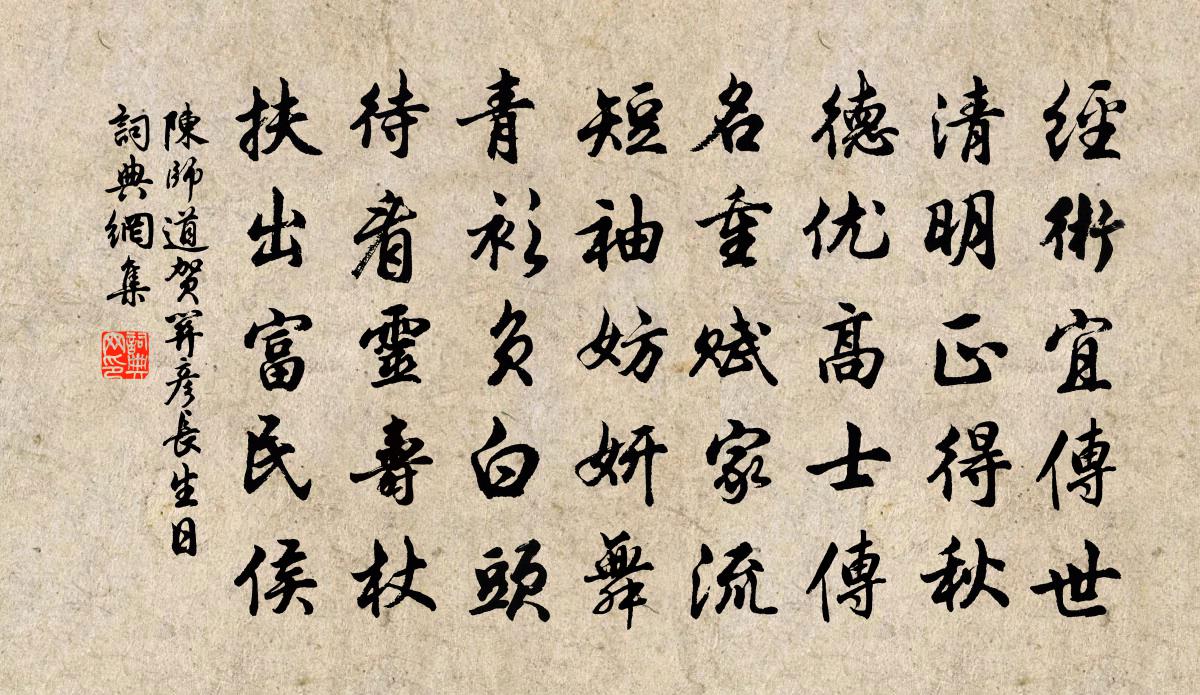 經術宜傳世
清明正得秋
德优高士傳
名重賦家流
短袖妨妍舞
青衫負白頭
待看靈壽杖
扶出富民侯
陳師道賀关彥長生日
詞典網集
詞典
网印